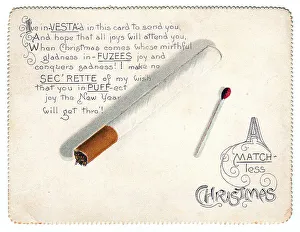 I've in-VESTA-d in this card to send you,
And hope that all joys will attend you,
When Christmas comes whose mirthful
gladness in-FUZEES joy and
conquers sadness! I make no
SEC'RETTE of my wish
that you in PUFF-ect
joy the New Year
will get thro'!
A
MATCH-
less
CHRISTMAS